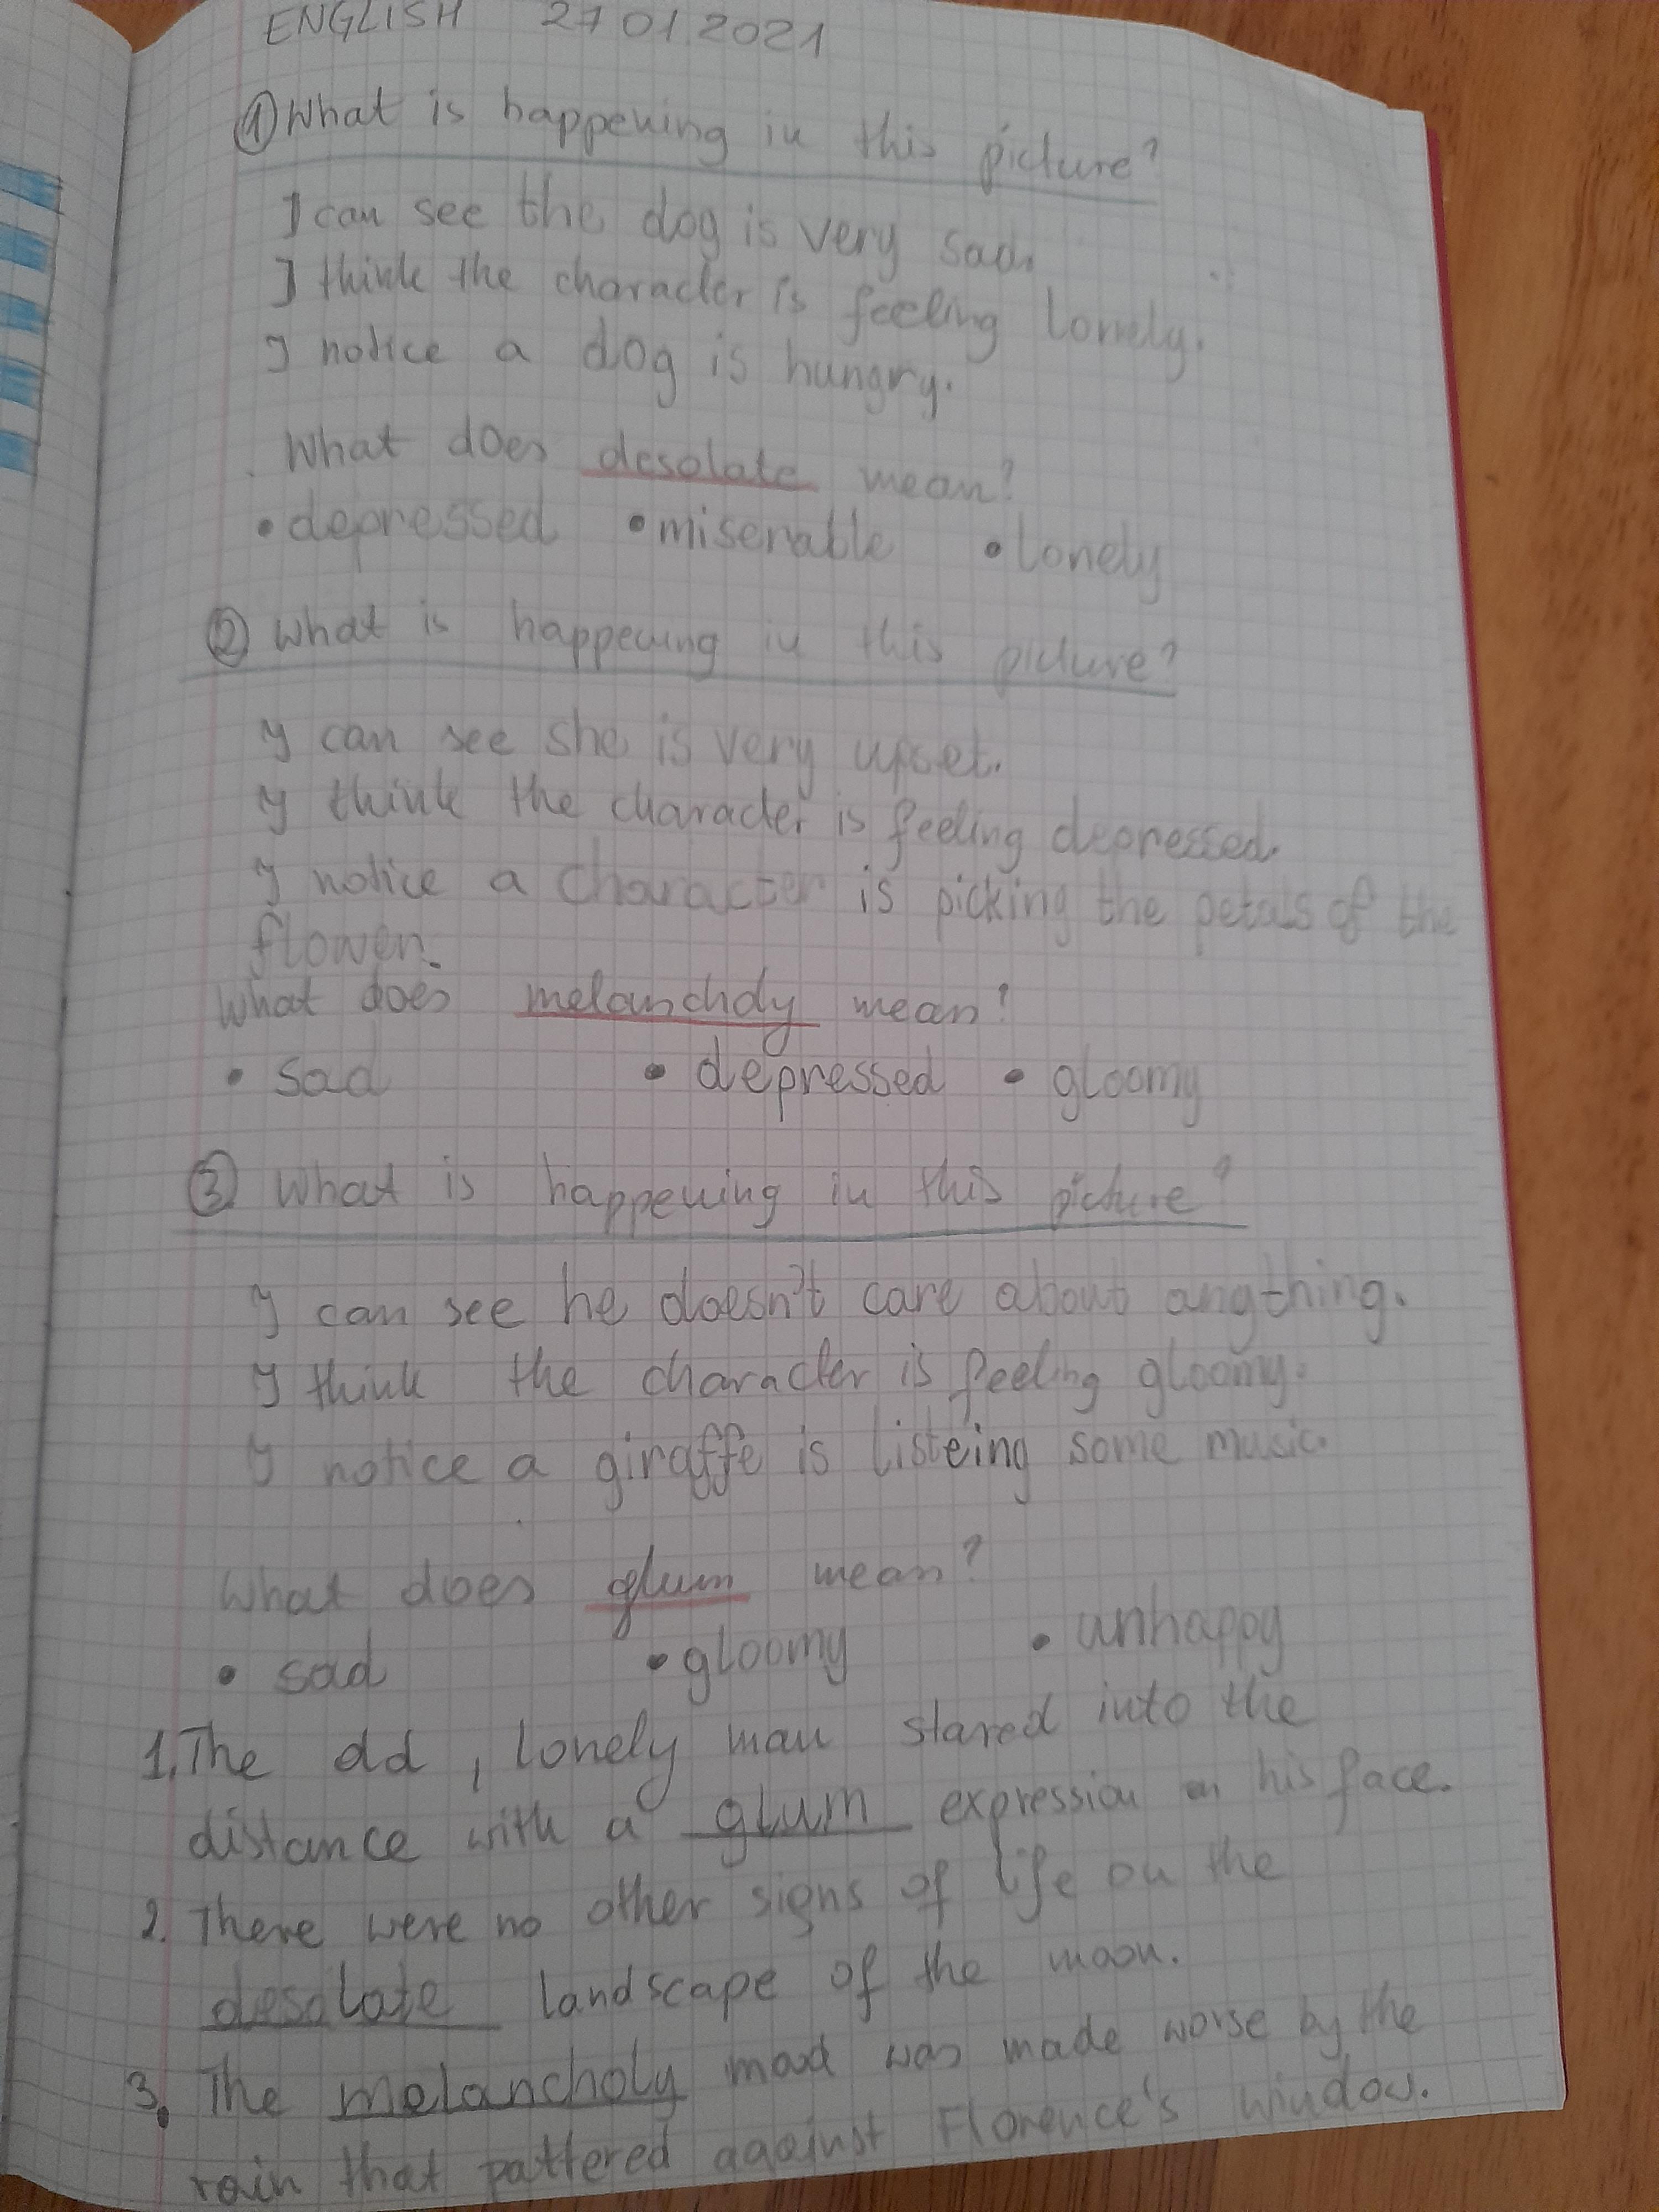 ENGLISH 27 01.2021
① What is happening in this picture?
I can see the dog is very sad.
I think the character is feeling lonely.
I notice a dog is hungry.
What does desolate mean?
• depressed • miserable • lonely
② What is happening in this picture?
I can see she is very upset.
I think the character is feeling depressed.
I notice a character is picking the petals of the
flower.
What does melancholy mean?
• sad • depressed • gloomy
③ What is happening in this picture?
I can see he doesn't care about angthing.
I think the character is feeling gloomy.
I notice a giraffe is listeing some music.
What does glum mean?
• sad • gloomy • unhappy
1. The old, lonely man stared into the
distance with a glum expression on his face.
2. There were no other signs of life on the
desolate landscape of the moon.
3. The melancholy mood was made worse by the
rain that pattered against Florence's window.